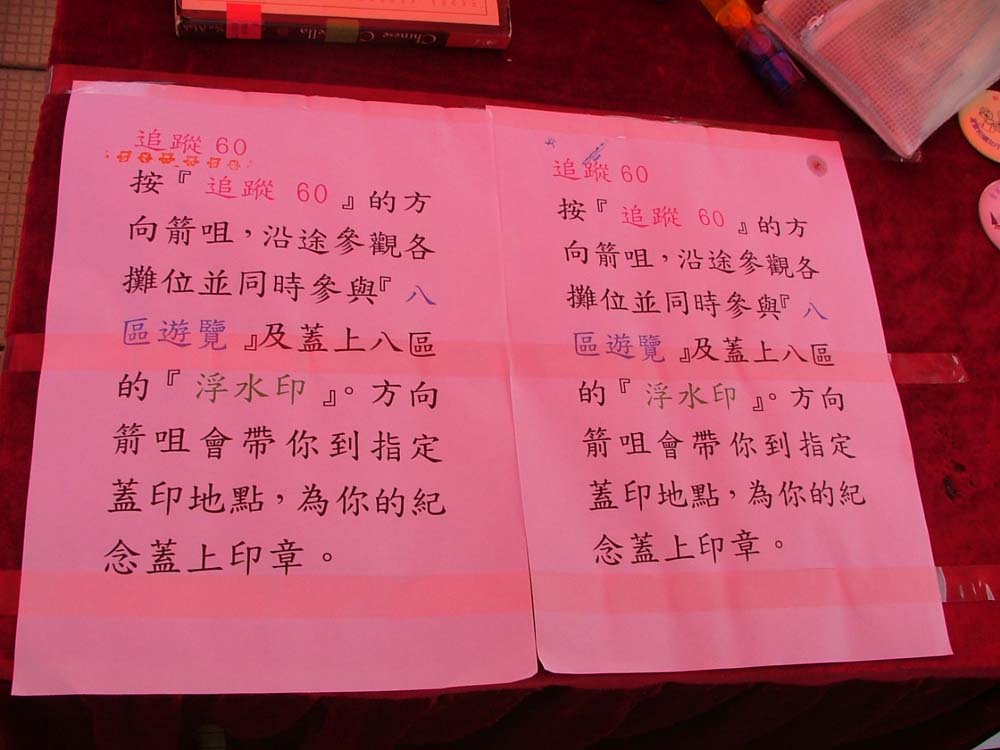 Chinese
追蹤 60
按『 追蹤 60 』的方
向箭咀，沿途參觀各
攤位並同時參與『八
區遊覽 』及蓋上八區
的『 浮水印 』。方向
箭咀會帶你到指定
蓋印地點，為你的紀
念蓋上印章。
追蹤 60
按『 追蹤 60 』的方
向箭咀，沿途參觀各
攤位並同時參與『八
區遊覽 』及蓋上八區
的『 浮水印 』。方向
箭咀會帶你到指定
蓋印地點，為你的紀
念蓋上印章。